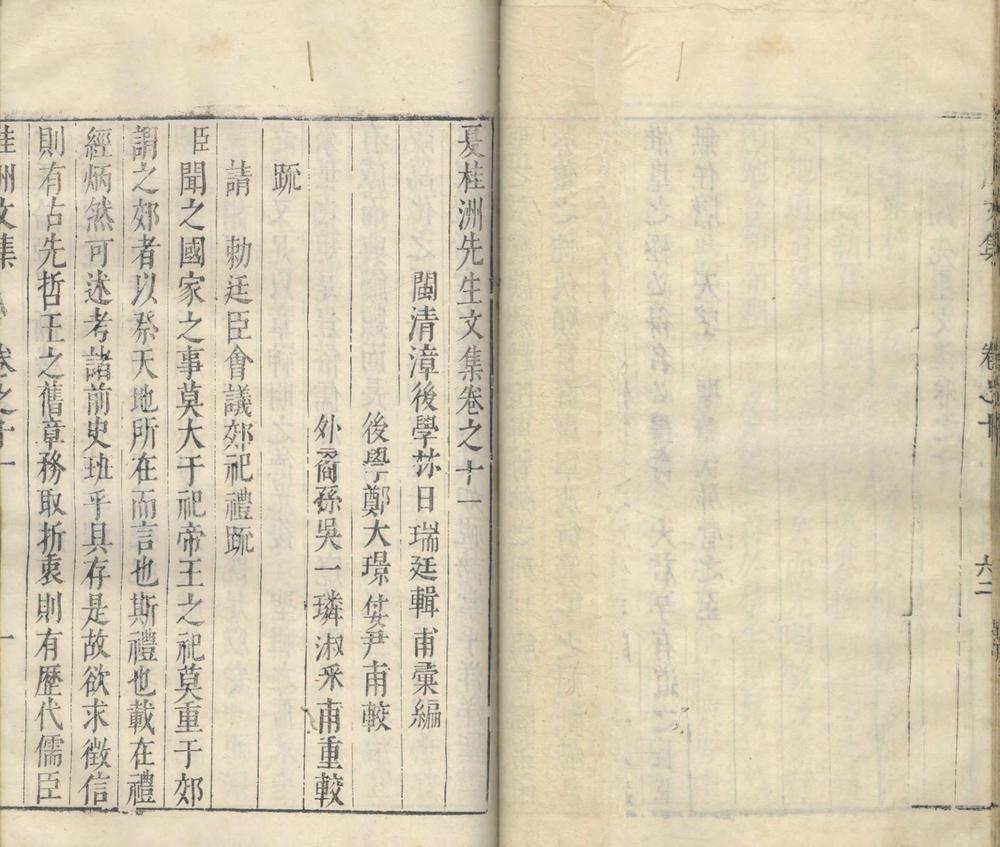 文集
卷之十
六二
夏桂洲先生文集卷之十一
閩清漳後學林日瑞廷輯甫彙編
後學鄭大璟尹甫較
外裔孫吳一璘淑釆甫重較
䟽
請 勅廷臣會議郊祀禮䟽
臣聞之國家之事莫大于祀帝王之祀莫重于郊
謂之郊者以祭天地所在而言也斯禮也載在禮
經炳然可述考諸前史班乎具存是故欲求徵信
則有古先哲王之舊章務取折衷則有歷代儒臣
桂洲文集
卷之十一
一